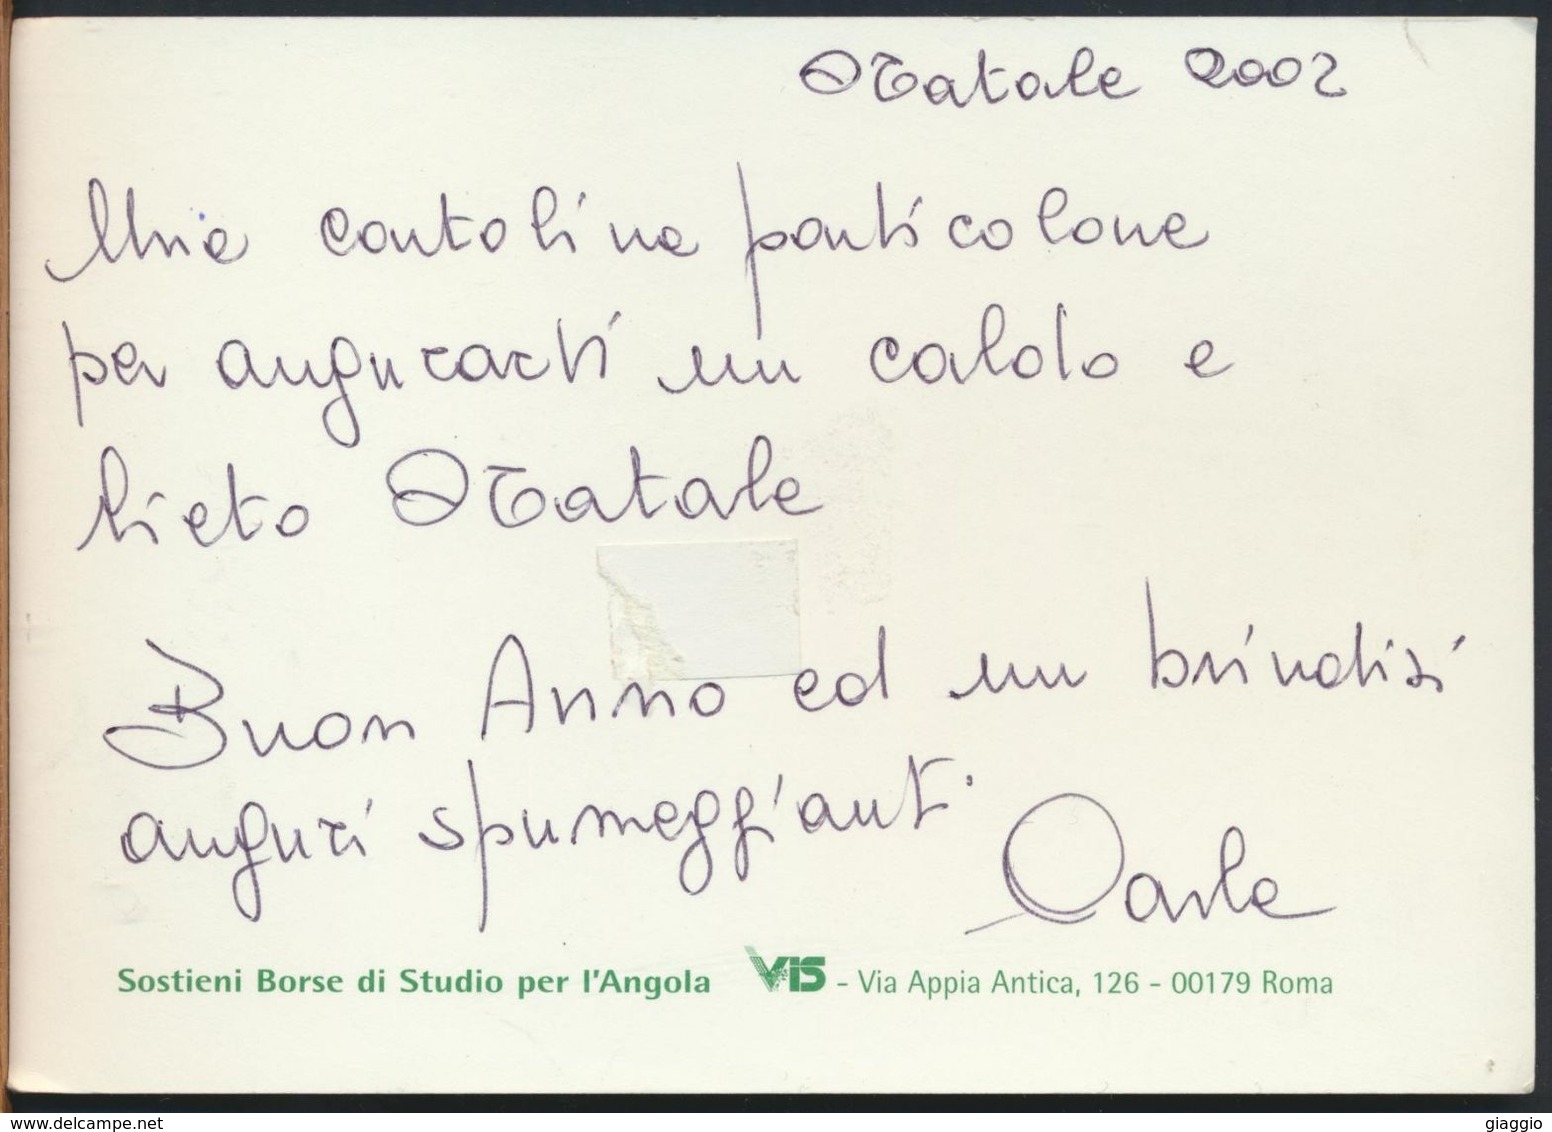 Natale 2002
Una cartolina particolare
per augurarti un caldo e
lieto Natale
Buon Anno ed un brindisi
auguri spumeggianti
Carla
Sostieni Borse di Studio per l'Angola VIS - Via Appia Antica, 126 - 00179 Roma
www.delcampe.net
giaggio